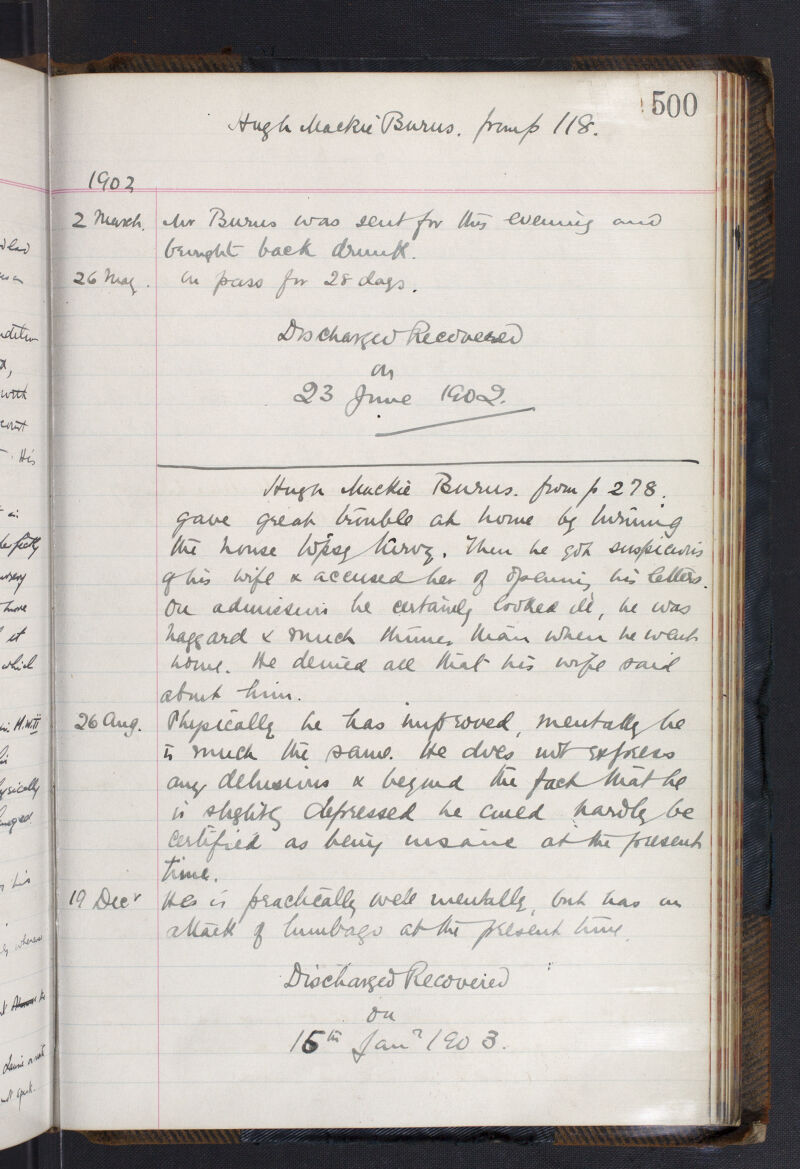 500
Hugh Mackie Burns. from p 118.
1902
2 March. Mr Burns was sent for this evening and
brought back drunk.
26 May. on pass for 28 days.
Discharged Recovered
on
23 June 1902.
Hugh Mackie Burns. from p 278.
gave great trouble at home by turning
the house topsy turvy. Then he got suspicious
of his wife & accused her of opening his letters.
On admission he certainly looked ill, he was
haggard & much thinner than when he went
home. He denied all that his wife said
about him.
26 Aug. Physically he has improved, mentally he
is much the same. He does not express
any delusions & beyond the fact that he
is slightly depressed he could hardly be
certified as being insane at the present
time.
19 Decr He is practically well mentally, but has an
attack of lumbago at the present time.
Discharged Recovered
on
15th Jany 1903.